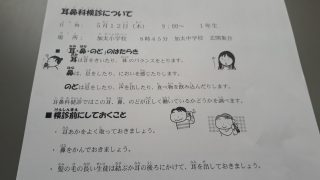 耳鼻科検診について
日 時 5月22日(木) 9:00～ 1年生
場 所 加太小学校 8時45分 加太中学校 玄関集合
■耳・鼻・のどのはたらき
耳は音をきいたり、体のバランスをとります。
鼻は、息をしたり、においを感じたりします。
のどは息をしたり、声を出したり、食べ物を飲み込んだりします。
耳鼻科検診ではこの耳、鼻、のどが正しく働いているかどうかを調べます。
■検診前にしておくこと
・耳あかをよく取っておきましょう。
・鼻をかんでおきましょう。
・髪の毛の長い生徒は結ぶか耳の後ろにかけて、耳を出しておきましょう。